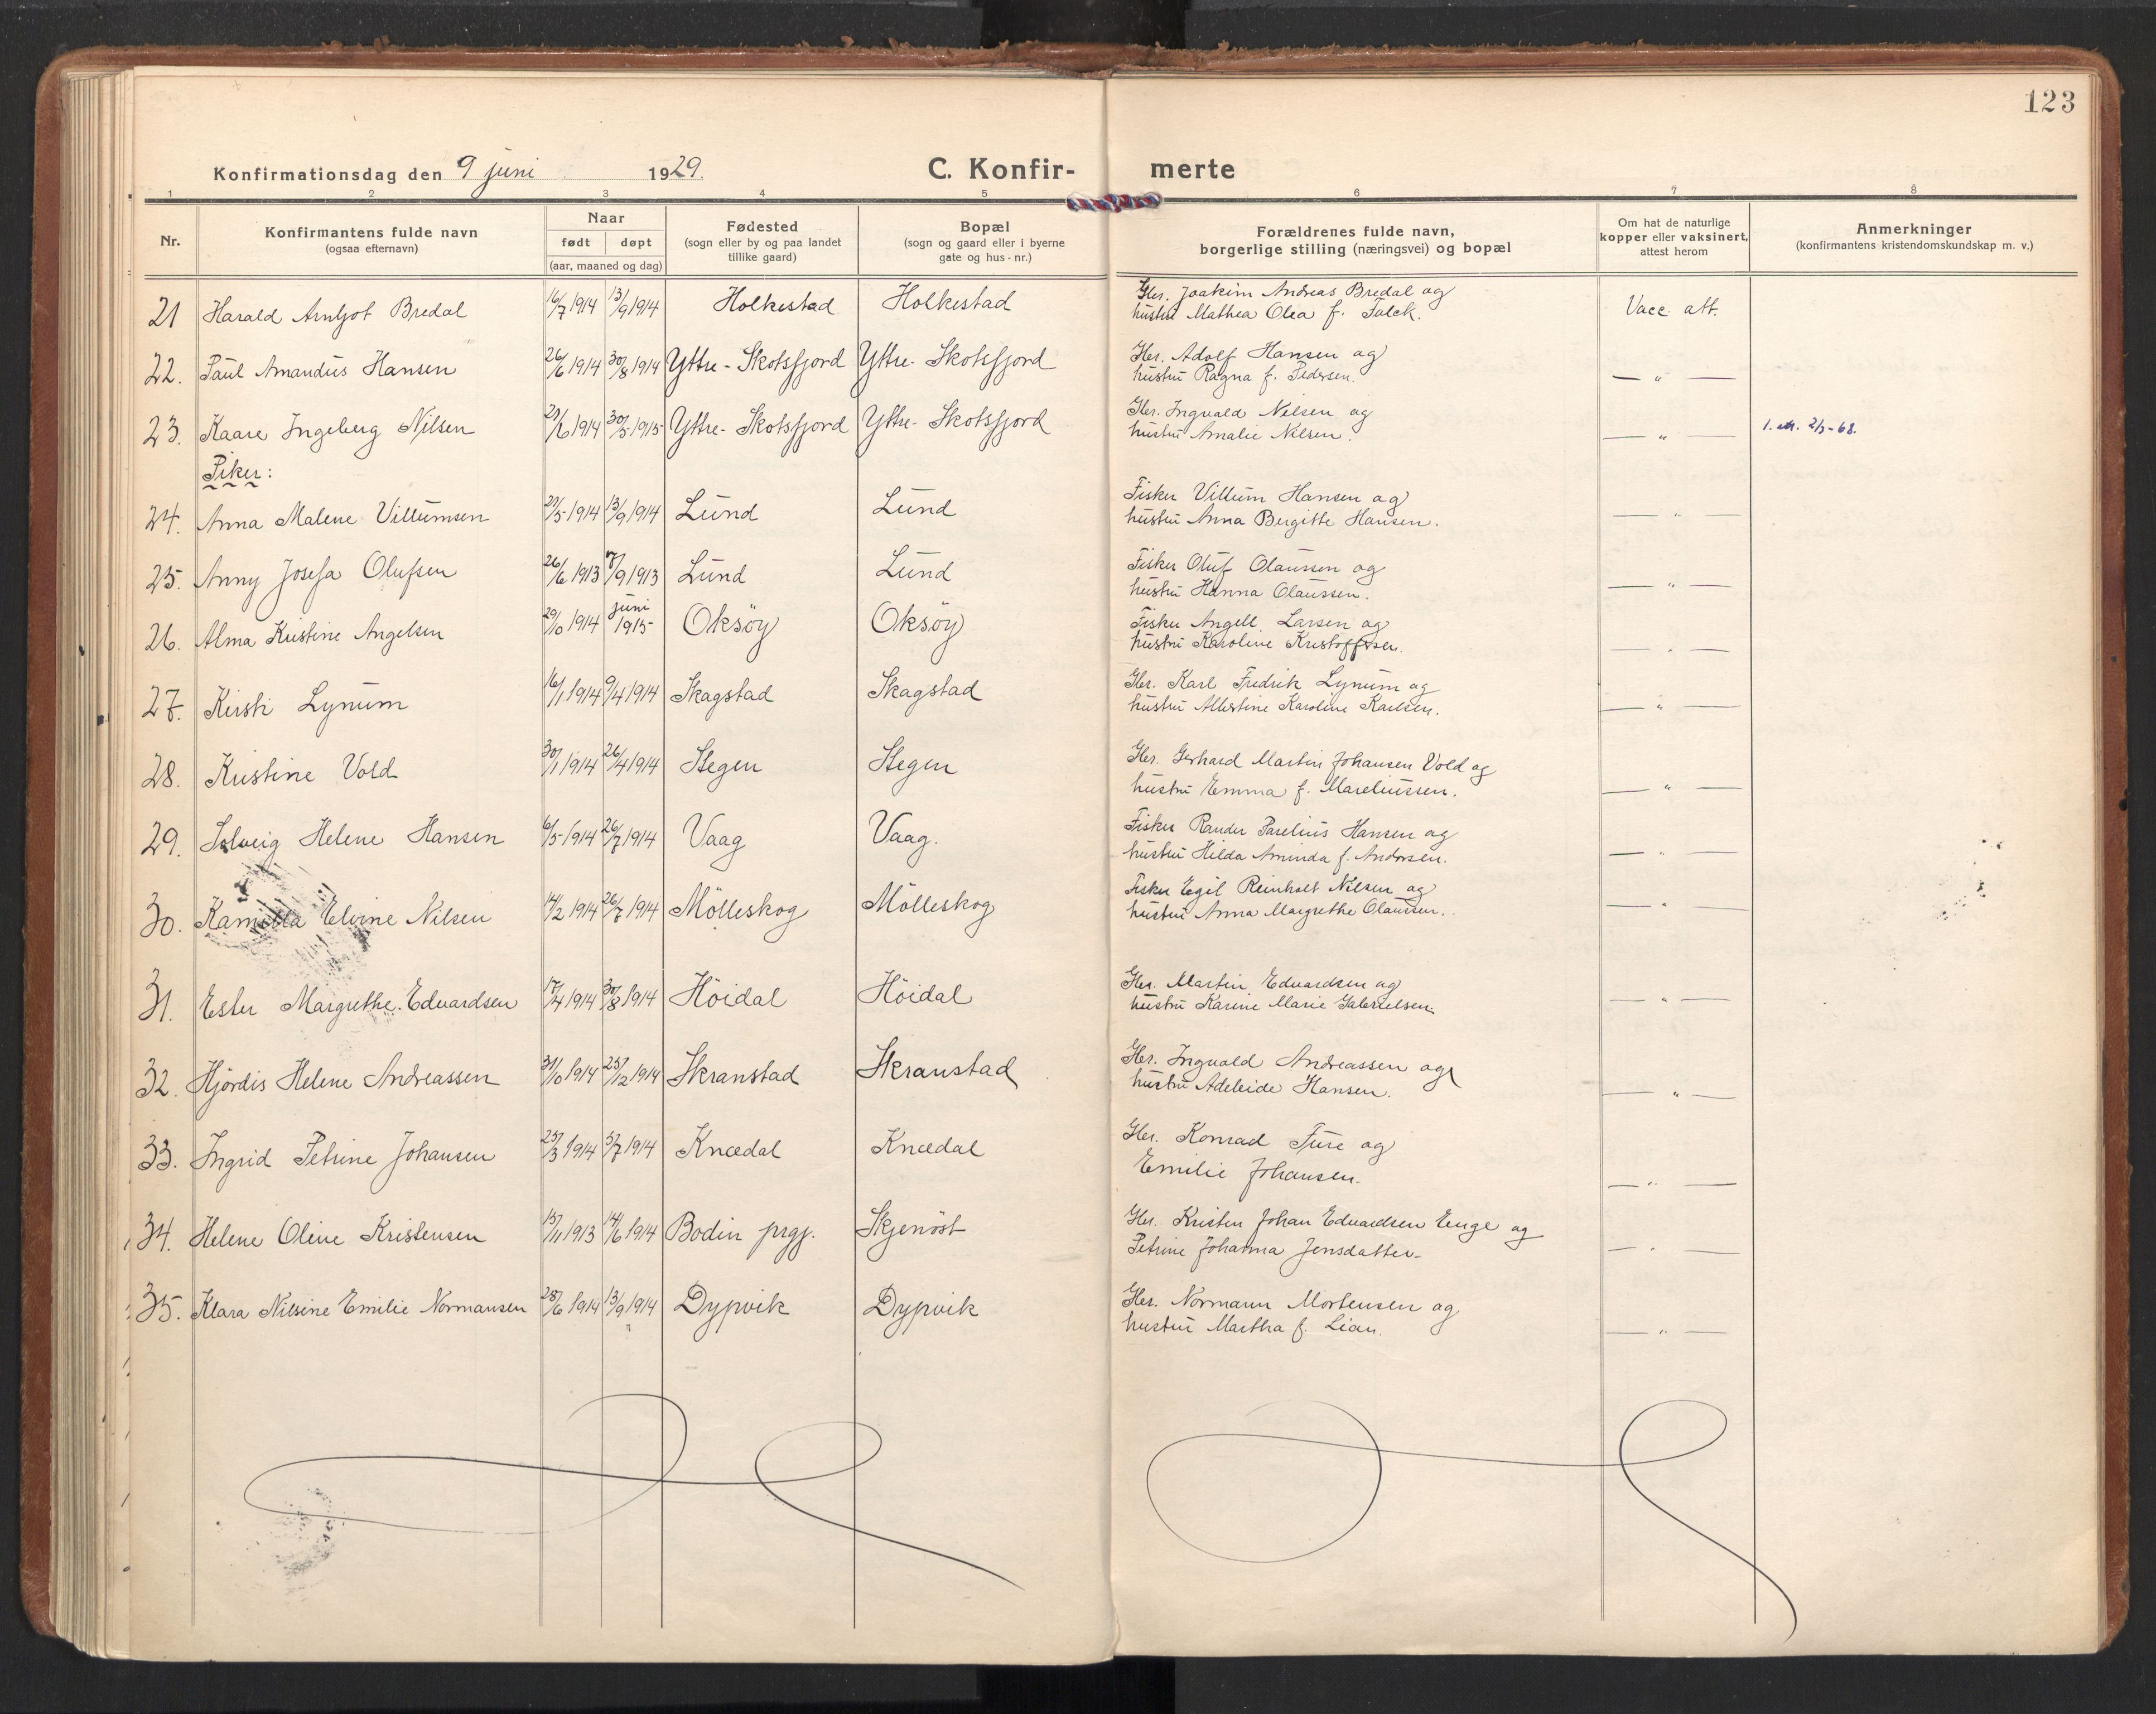 123
Konfirmationsdag den 9 juni 1929.
C. Konfir- merte
1 2 3 4 5 6 7 8
Nr.
Konfirmantens fulde navn
(ogsaa efternavn)
Naar
født døpt
(aar, maaned og dag)
Fødested
(sogn eller by og paa landet
tillike gaard)
Bopæl
(sogn og gaard eller i byerne
gate og hus-nr.)
Forældrenes fulde navn,
borgerlige stilling (næringsvei) og bopæl
Om hat de naturlige
kopper eller vaksinert,
attest herom
Anmerkninger
(konfirmantens kristendomskundskap m. v.)
21 Harald Arnljot Bredal 16/7 1914 13/9 1914 Holkestad Holkestad Gbr. Joakim Andreas Bredal og Vacc. att.
hustru Mathea Olea f. Falck.
22. Paul Amandus Hansen 26/6 1914 30/8 1914 Yttre-Skotsfjord Yttre-Skotsfjord Gbr. Adolf Hansen og
hustru Ragna f. Pedersen. — " —
23. Kaare Ingeberg Nilsen 29/6 1914 30/5 1915 Yttre-Skotsfjord Yttre-Skotsfjord Gbr. Ingvald Nilsen og
hustru Amalie Nilsen. — " — 2/3-68.
Piker:
24. Anna Malene Villumsen 29/5 1914 13/9 1914 Lund Lund Fisker Villum Hansen og
hustru Anna Bergitte Hansen. — " —
25. Anny Josefa Olufsen 26/6 1913 7/9 1913 Lund Lund Fisker Oluf Olaussen og
hustru Hanna Olaussen. — " —
26. Alma Kristine Angelsen 29/10 1914 juni 1915 Oksöy Oksöy Fisker Angell Larsen og
hustru Karoline Kristoffersen. — " —
27. Kirsti Lynum 16/1 1914 9/4 1914 Skagstad Skagstad Gbr. Karl Fredrik Lynum og
hustru Albertine Karoline Karlsen. — " —
28. Kristine Vold 30/1 1914 26/4 1914 Stegen Stegen Gbr. Gerhard Martin Johansen Vold og
hustru Emma f. Mareliussen. — " —
29. Solveig Helene Hansen 6/5 1914 26/7 1914 Vaag Vaag. Fisker Rander Parelius Hansen og
hustru Hilda Aminda f. Andersen. — " —
30. Kamilla Elvine Nilsen 14/2 1914 26/7 1914 Mölleskog Mölleskog Fisker Egil Reinholt Nilsen og
hustru Anna Margrethe Olaussen. — " —
31. Ester Margrethe Edvardsen 17/4 1914 30/8 1914 Höidal Höidal Gbr. Martin Edvardsen og
hustru Karine Marie Gabrielsen. — " —
32. Hjördis Helene Andreassen 31/10 1914 25/12 1914 Skranstad Skranstad Gbr. Ingvald Andreassen og
hustru Adeleide Hansen. — " —
33. Ingrid Petrine Johansen 25/3 1914 5/7 1914 Knædal Knædal Gbr. Konrad Fure og
Emilie Johansen. — " —
34. Helene Oline Kristensen 15/11 1913 14/6 1914 Bodin prgj. Skjenöst Gbr. Kristen Johan Edvardsen Enge og
Petrine Johanna Jensdatter. — " —
35. Klara Nilsine Emilie Normansen 28/6 1914 13/9 1914 Dypvik Dypvik Gbr. Normann Mortensen og
hustru Martha f. Lian. — " —